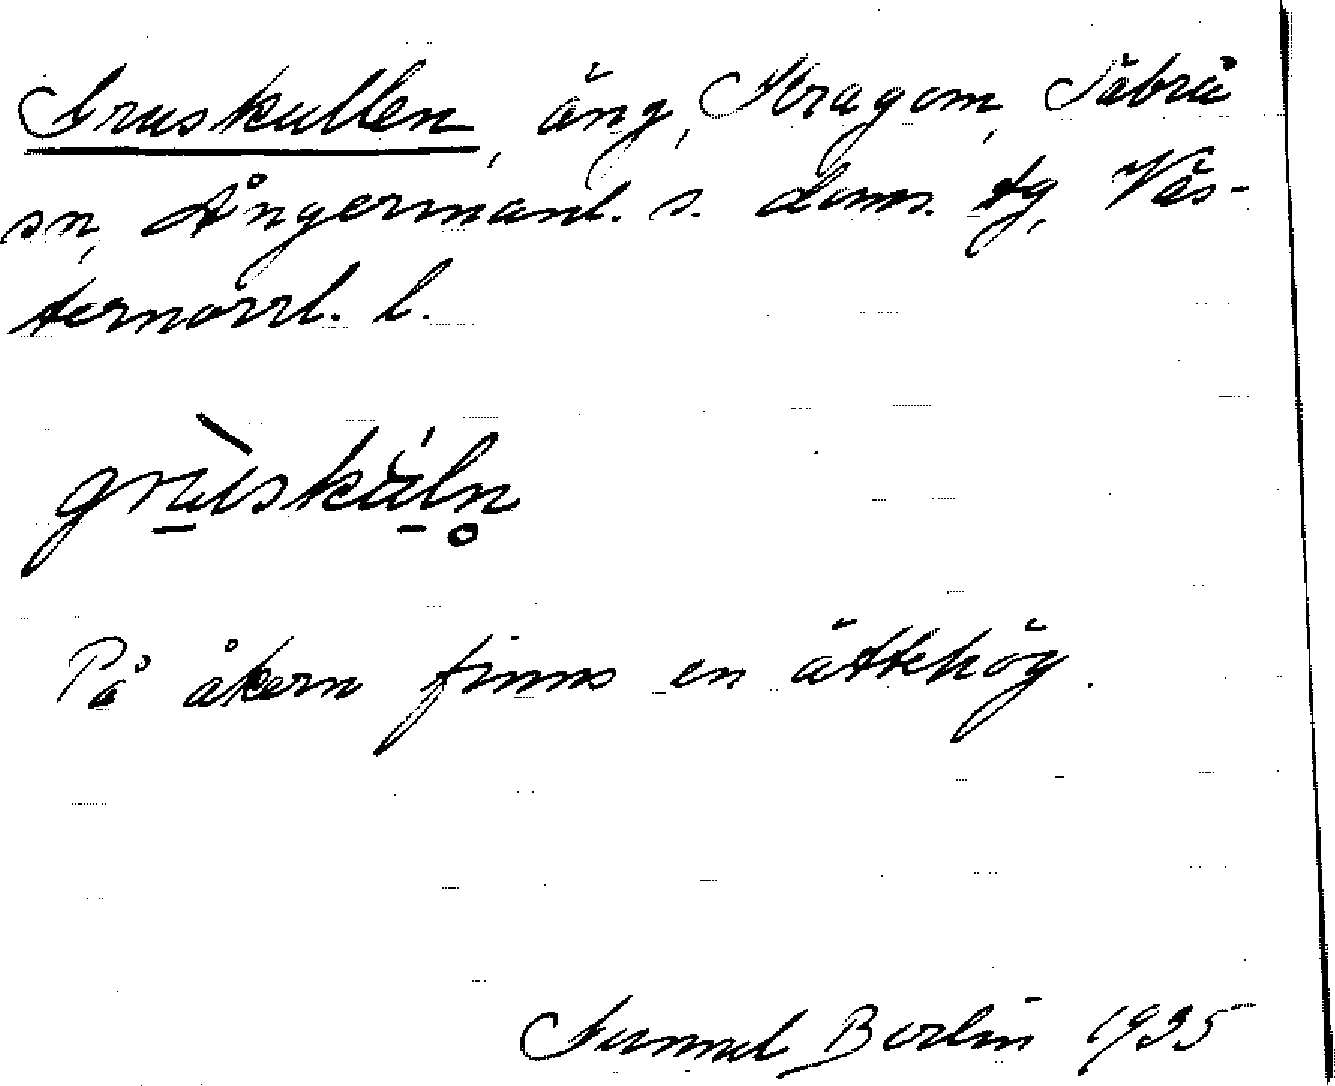 Gruskullen, äng, Stragom, Säbrå
sn, Ångermanl. s. doms. tg, Väs-
ternorrl. l.
gru̠skụ̠ln̥
På åkern finns en ättehög.
Gunnel Berlin 1935